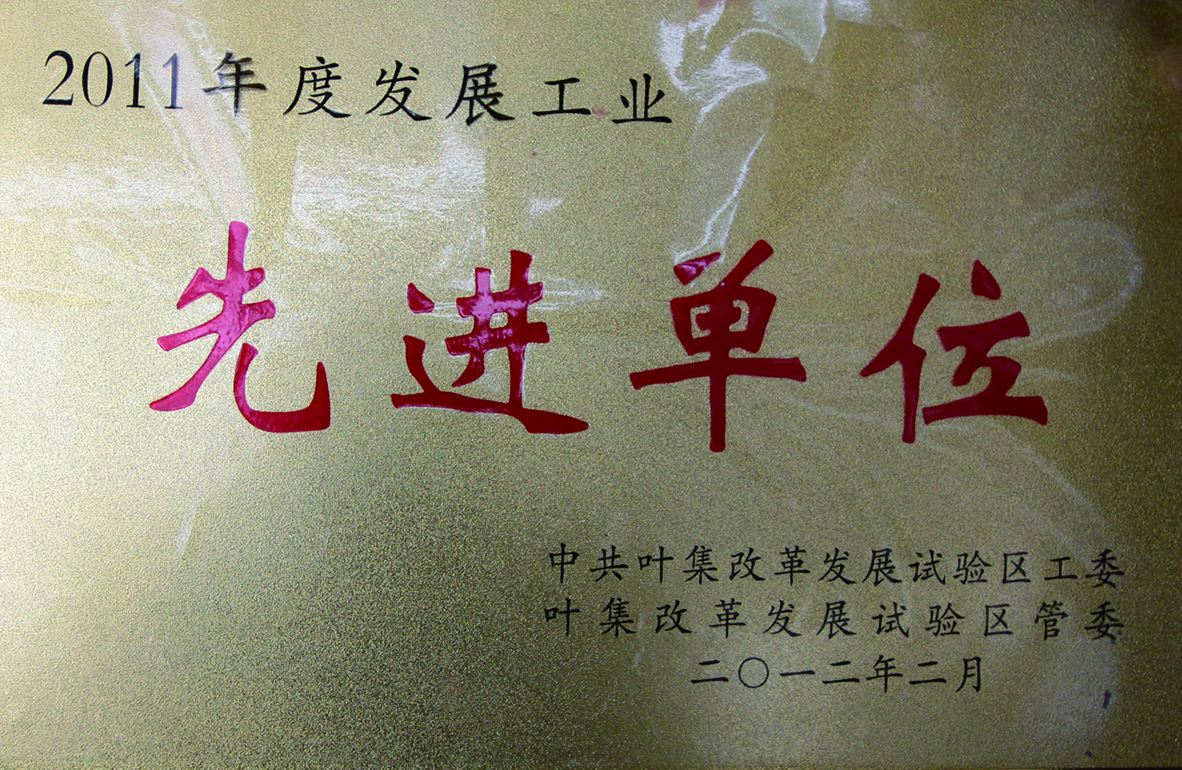 2011年度发展工业
先进单位
中共叶集改革发展试验区工委
叶集改革发展试验区管委
二〇一二年二月